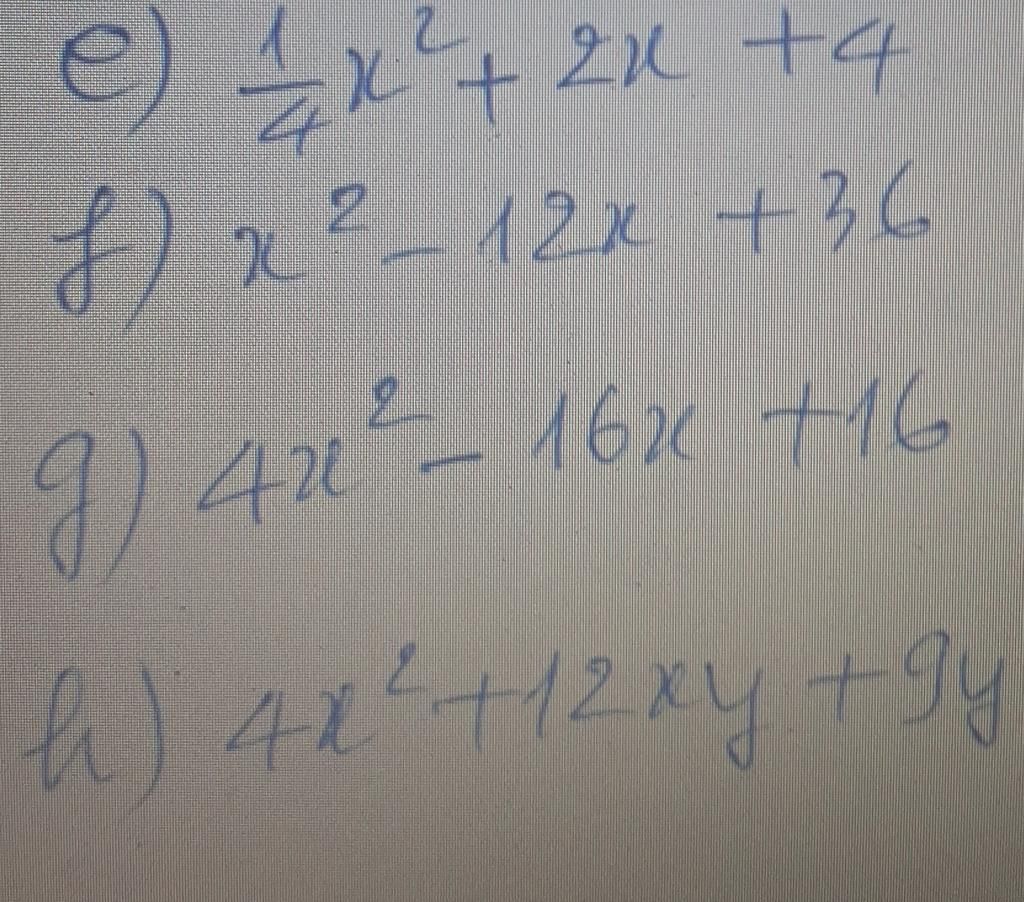 e) 1/4 x² + 2x + 4
f) x² - 12x + 36
g) 4x² - 16x + 16
h) 4x² + 12xy + 9y